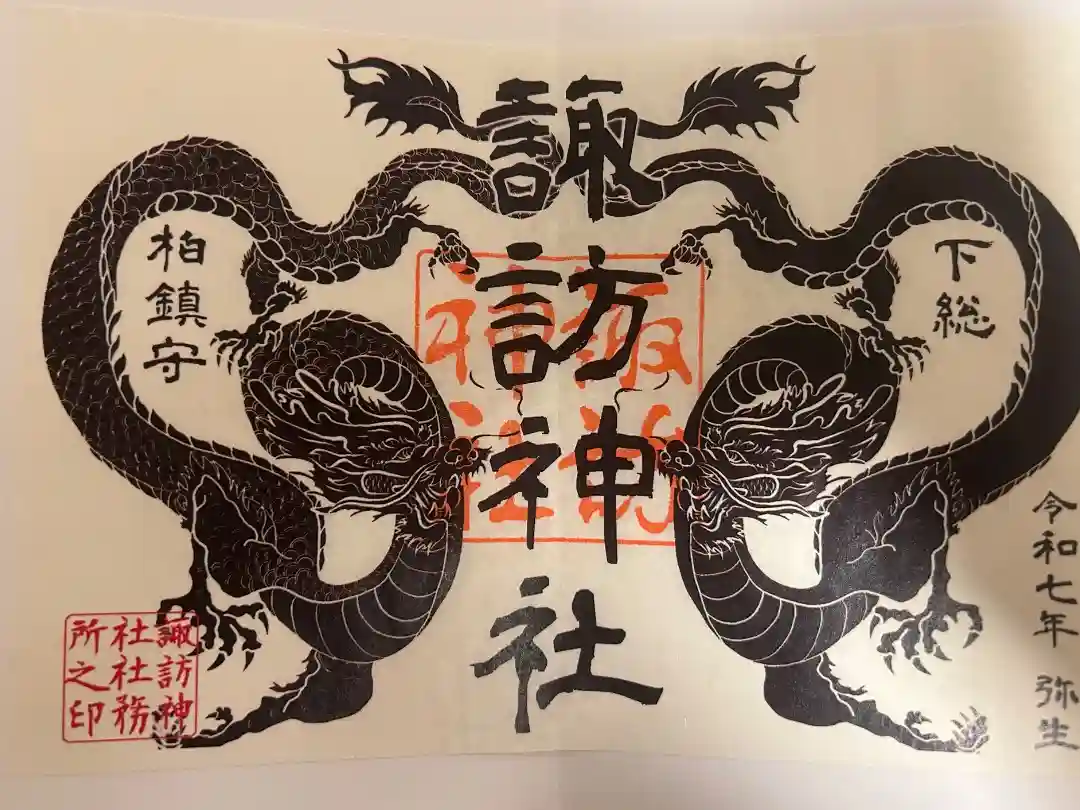 諏訪神社
下総
柏鎮守
令和七年 弥生
諏訪神社
諏訪神
社社務
所之印